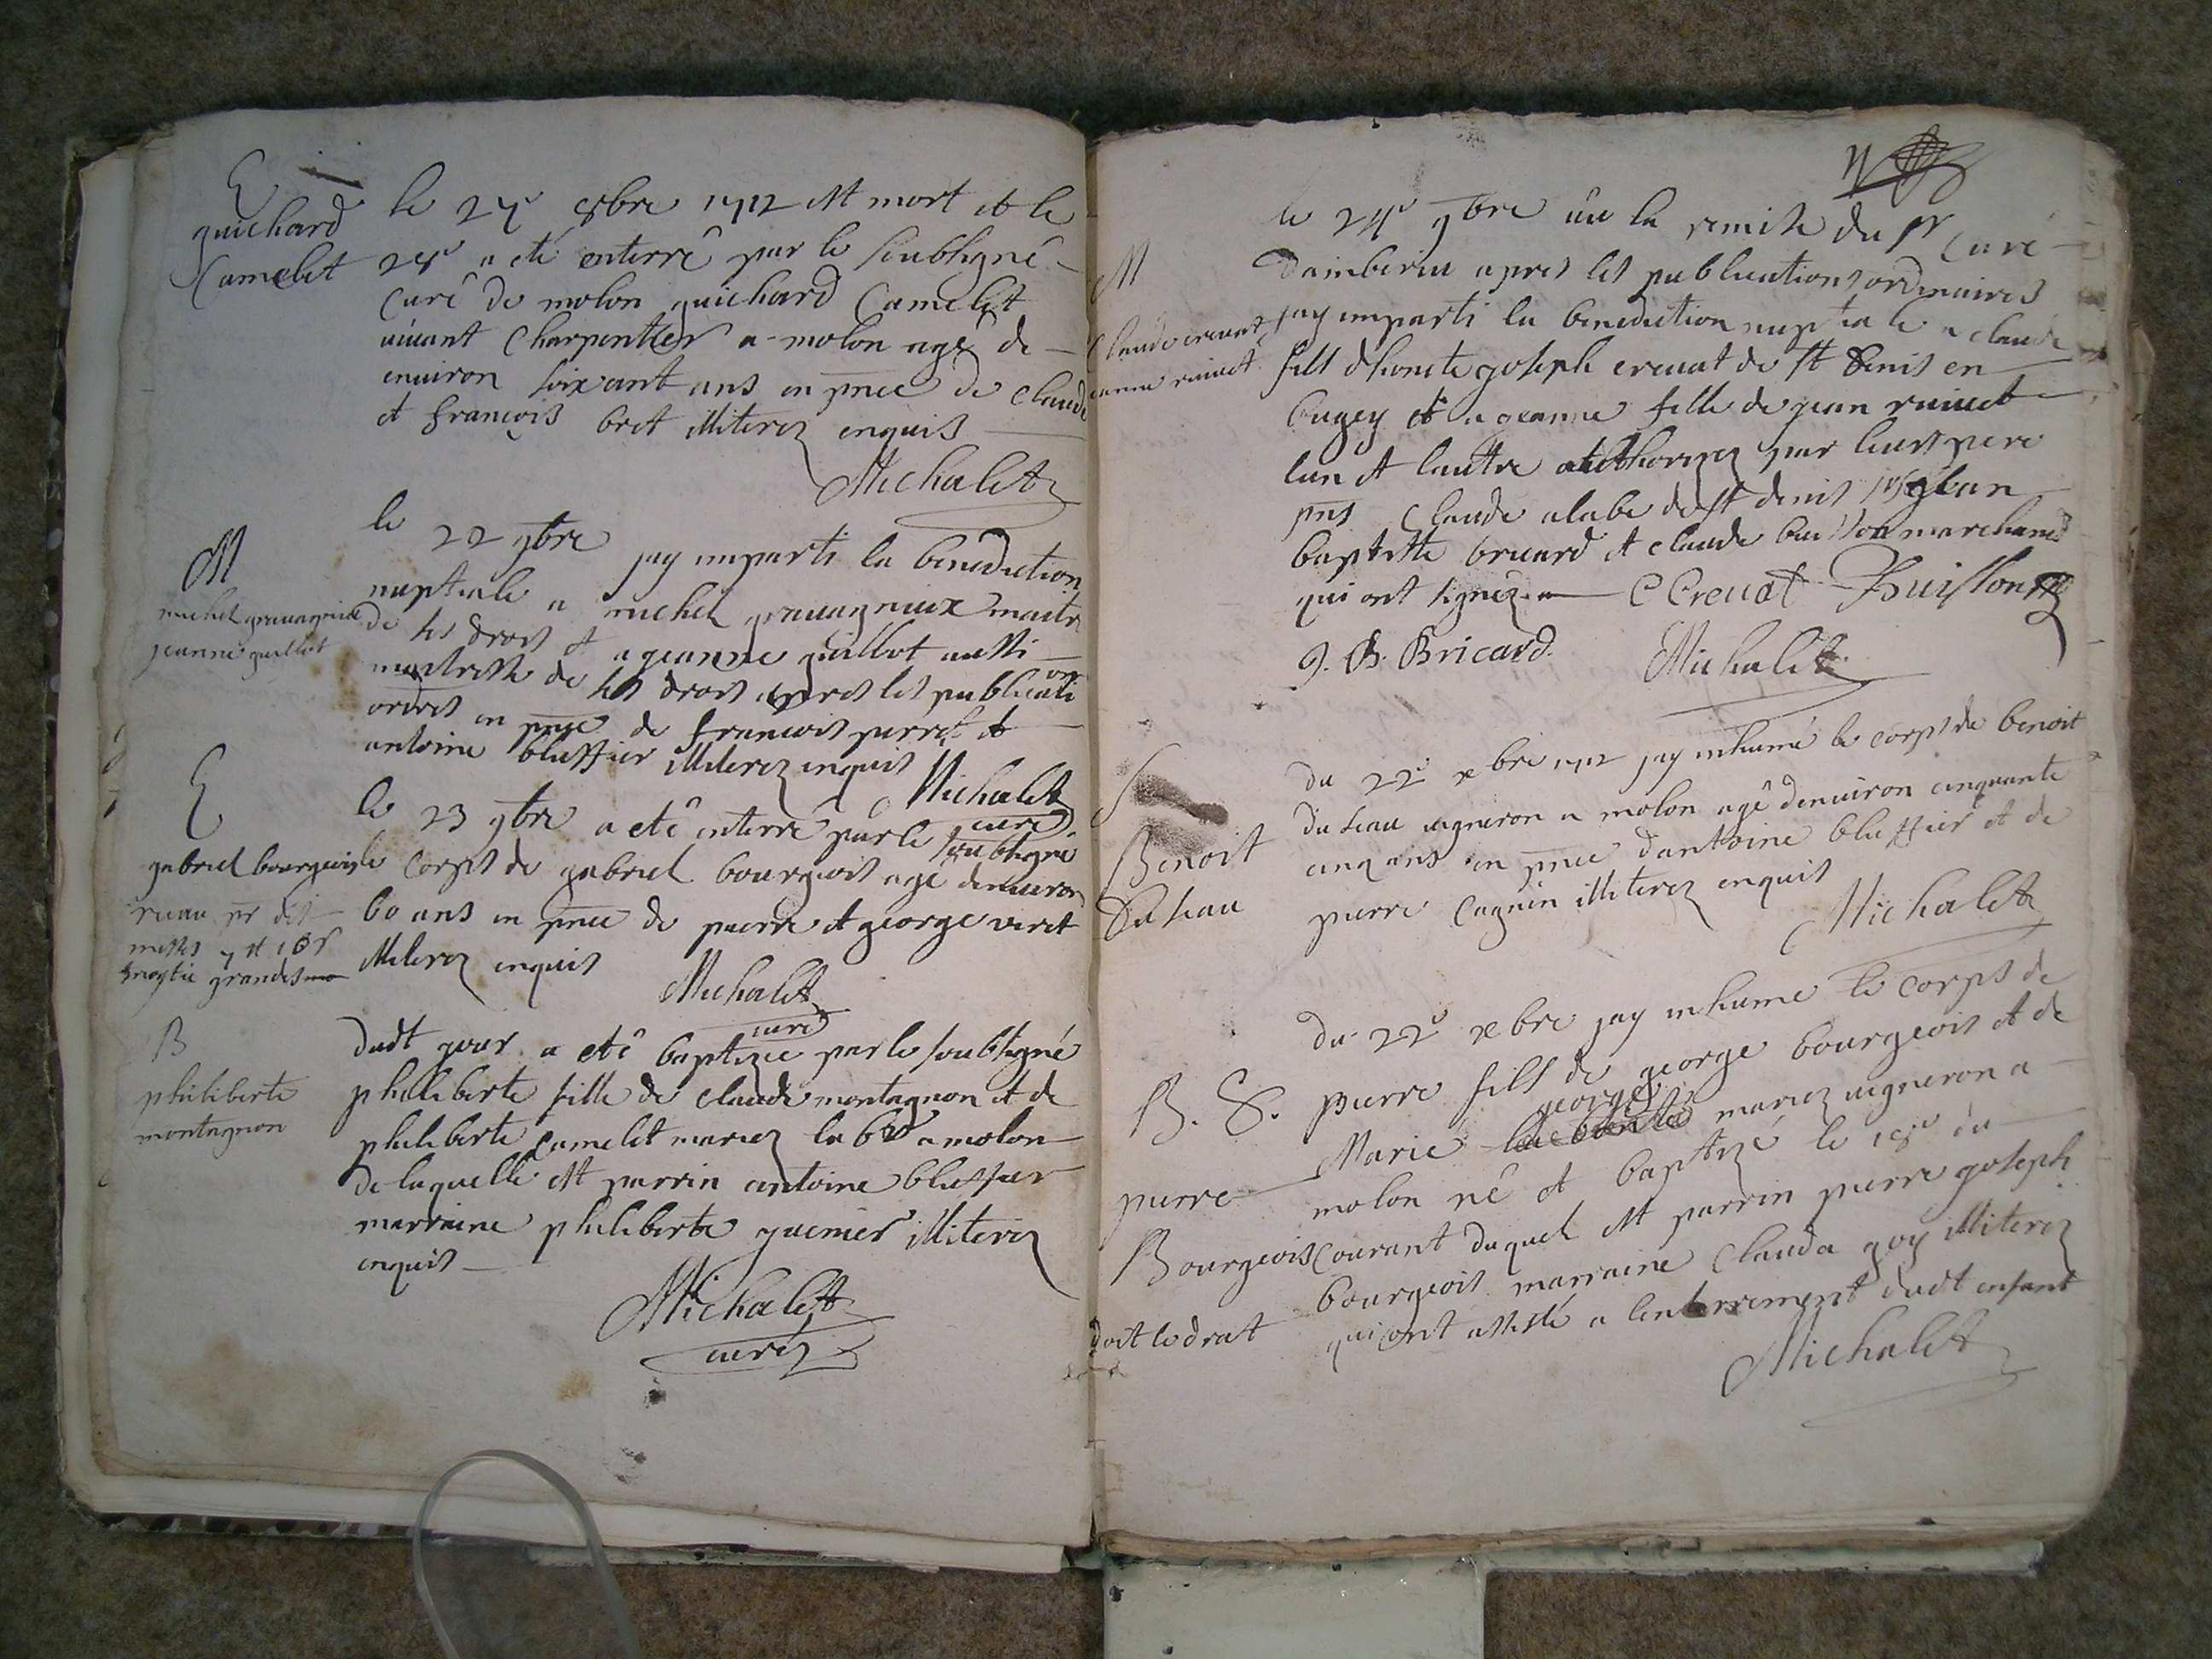 E
guichard
Camelet
le 27e 8bre 1712 est mort et le
28e a eté enterré par le soubsigné
curé de molon guichard Camelet
vivant Charpentier a molon agé de
environ soixant ans en pnce de claude
et françois bret illiterez enquis
Michalet
M
michel grauagnieux
jeanne guillot
le 22 9bre jay imparti la benediction
nuptiale a michel grauagnieux maitre
de ses droits et a jeanne guillot aussi
maistresse de ses droits apres les publicati
ons
ordres en pnce de francois perret et
antoine bluffier illiterez enquis
Michalet
curé
E
gabriel bourgeois
le 23 9bre a eté enterré par le soubsigné
le corps de gabriel bourgeois agé denuiron
60 ans en pnce de pierre et george veret
illiterez enquis
Michalet
curé
messes
grandes
B
philiberte
montagnon
dudt jour a eté baptizée par le soubsigné
philiberte fille de claude montagnon et de
philiberte Camelet mariez lab a molon
de laquelle est parrin antoine bluffier
marraine philiberte guenier illiterez
enquis
Michalet
curéz
M
Claude creuat
jeanne riuuet
le 24e 9bre uu la remise du sr curé
damberiu apres les publications ordinaires
jay imparti la benediction nuptiale a claude
fils dhoneste joseph creuat de st denis en
bugey et a jeanne fille de jean riuuet
lun et lautre authorizez par leurs pere
pns Claude alabe de st denis jean
baptiste bricard et claude buisson marchand
qui ont signéz C Creuat Buisson
J. B. Bricard Michalet
S
Benoit
Duseau
du 22e xbre 1712 jay inhumé le corps de benoit
duseau uigneron a molon agé denuiron cinquante
cinq ans en pnce dantoine bluffier et de
pierre Cagnin illiterez enquis
Michalet
B. S.
pierre
Bourgeois
doit le drat
du 22e xbre jay inhumé le corps de
pierre fils de george bourgeois et de
george
Marie mariez uigneron a
molon né et baptizé le 18e du
courant duquel est parrin pierre joseph
bourgeois marraine Clauda goy illiterez
qui ont assisté a lenterrement dudt enfant
Michalet